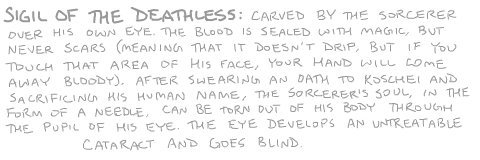 SIGIL OF THE DEATHLESS: CARVED BY THE SORCERER
OVER HIS OWN EYE. THE BLOOD IS SEALED WITH MAGIC, BUT
NEVER SCARS (MEANING THAT IT DOESN'T DRIP, BUT IF YOU
TOUCH THAT AREA OF HIS FACE, YOUR HAND WILL COME
AWAY BLOODY). AFTER SWEARING AN OATH TO KOSCHEI AND
SACRIFICING HIS HUMAN NAME, THE SORCERER'S SOUL, IN THE
FORM OF A NEEDLE, CAN BE TORN OUT OF HIS BODY THROUGH
THE PUPIL OF HIS EYE. THE EYE DEVELOPS AN UNTREATABLE
CATARACT AND GOES BLIND.